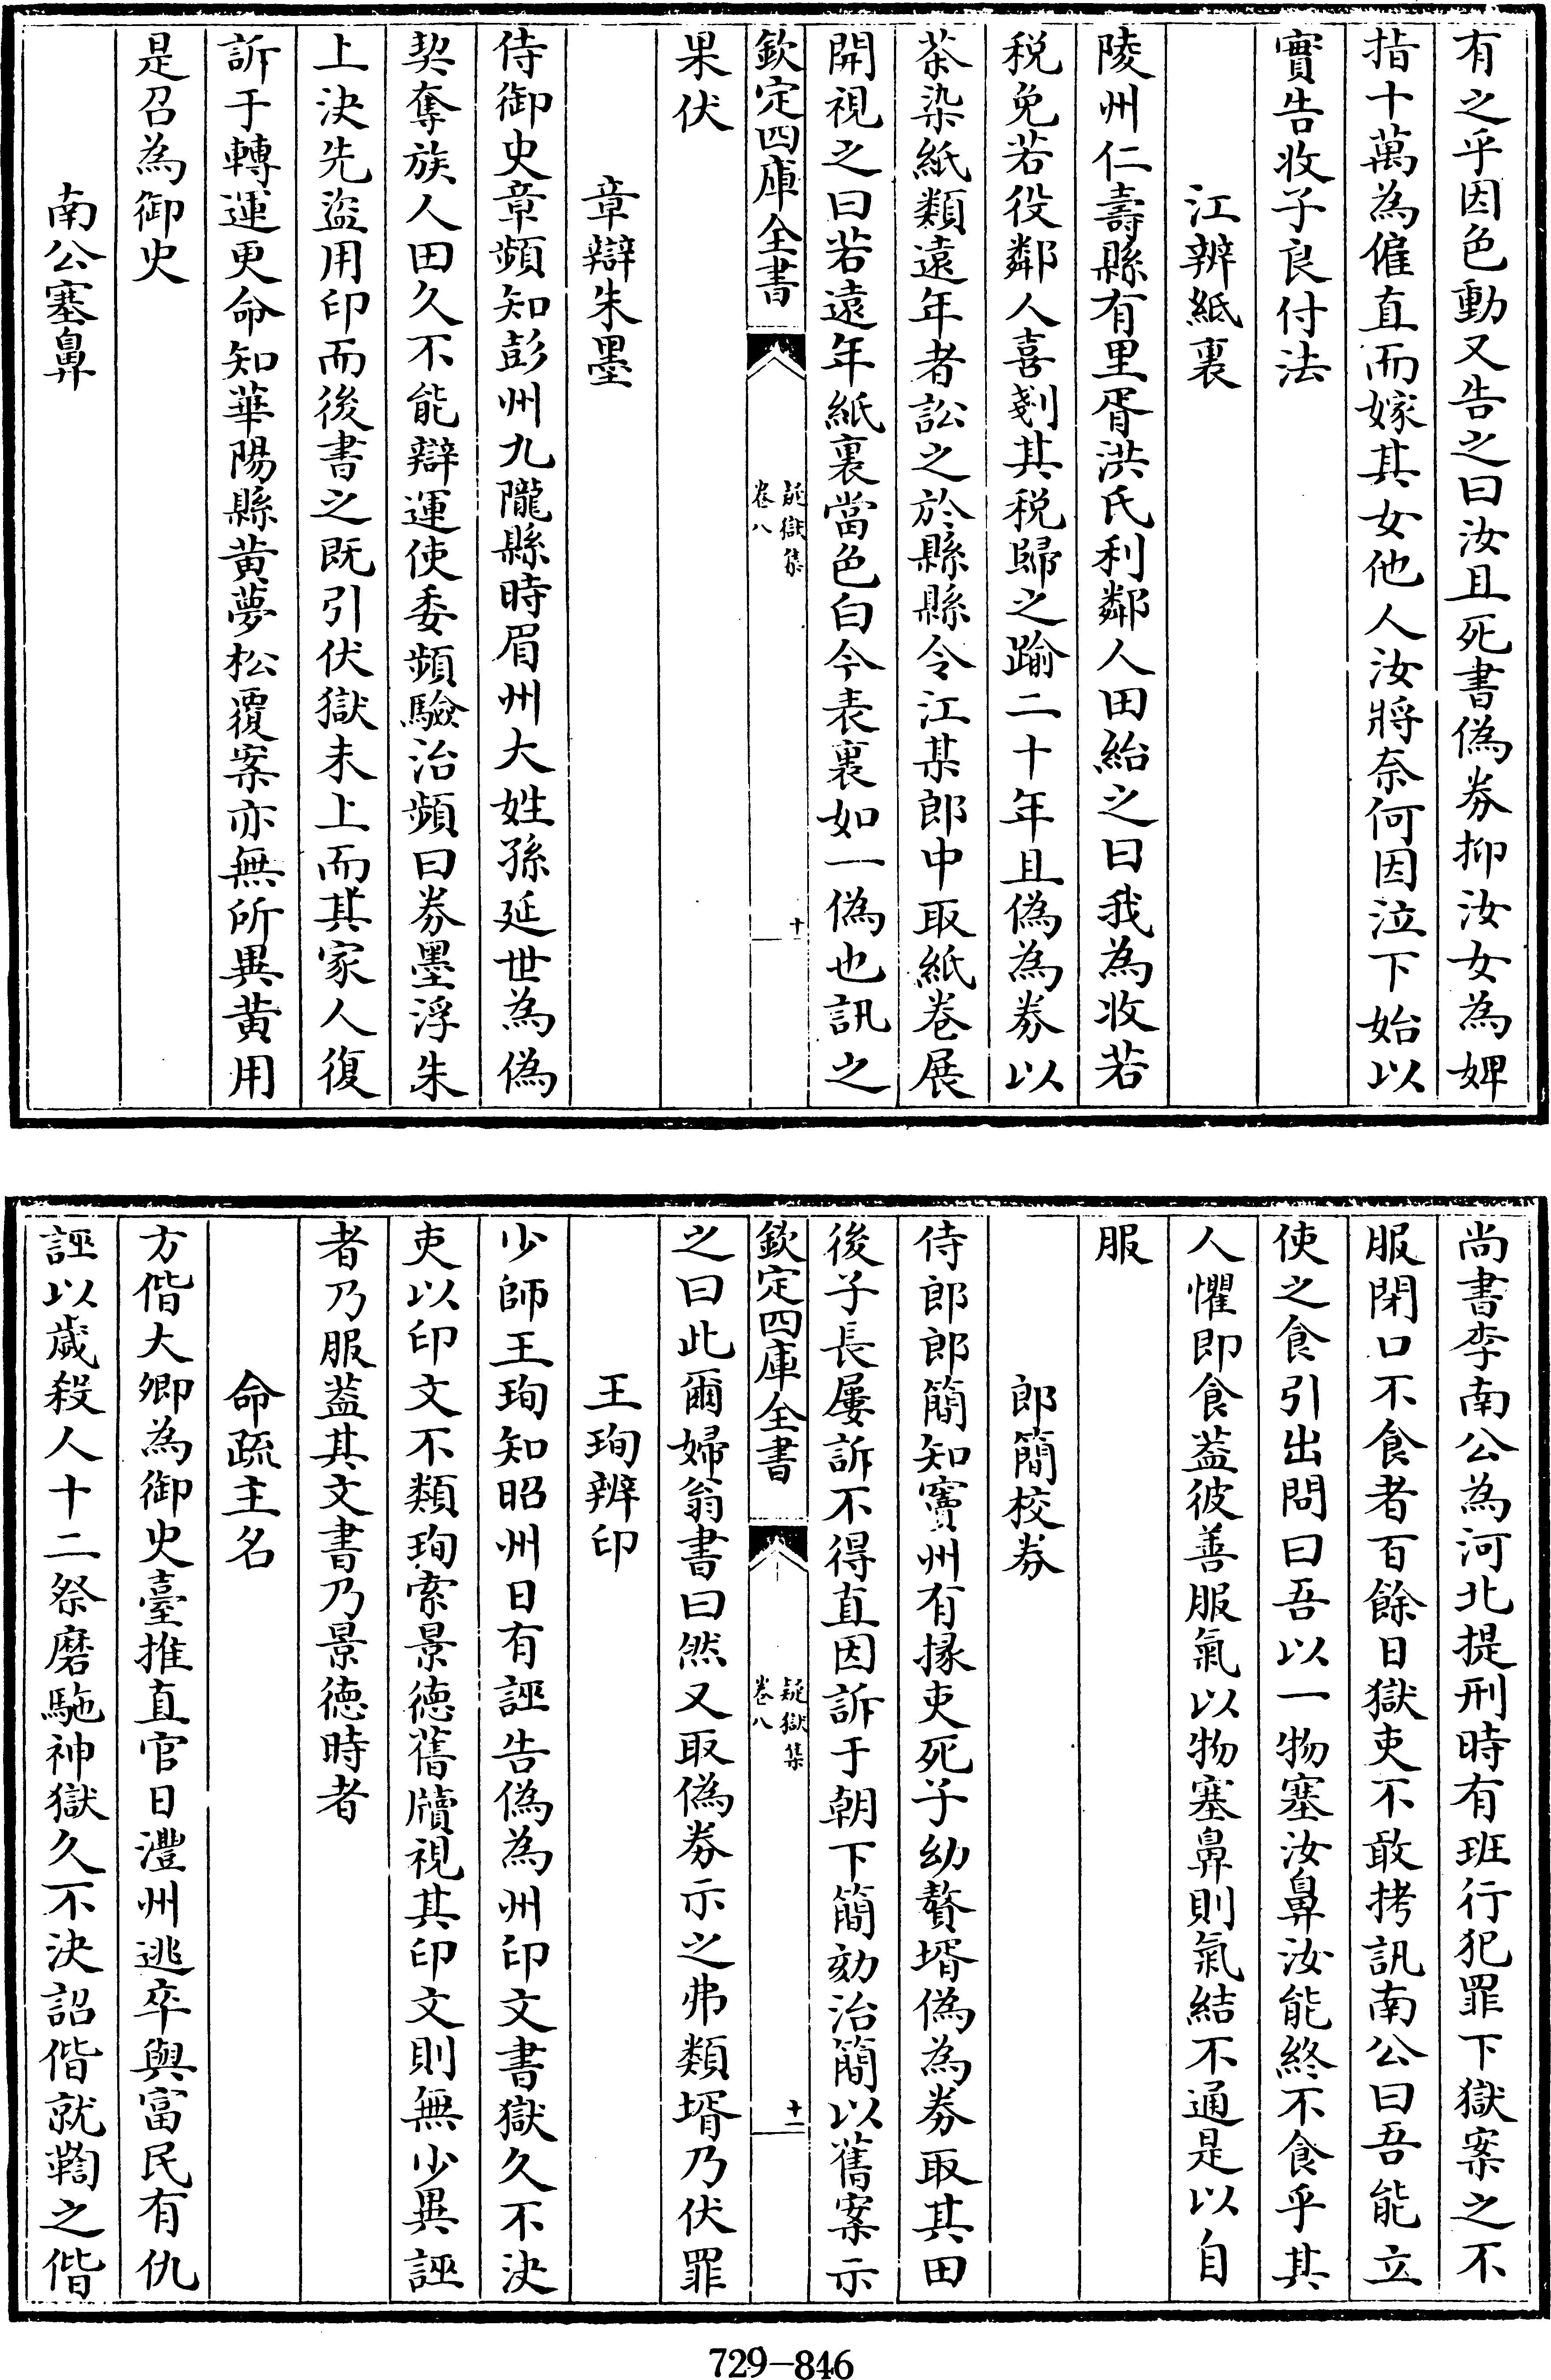 有之乎因色動又告之曰汝且死書偽券抑汝女為婢
指十萬為僱直而嫁其女他人汝將奈何因泣下始以
實告收子良付法
江辨紙裏
陵州仁壽縣有里胥洪氏利鄰人田紿之曰我為收若
税免若役鄰人喜剗其税歸之踰二十年且偽為券以
茶染紙類遠年者訟之於縣縣令江某郎中取紙卷展
開視之曰若遠年紙裏當色白今表裏如一偽也訊之
欽定四庫全書
疑獄集
卷八
十
果伏
章辯朱墨
侍御史章頻知彭州九隴縣時眉州大姓孫延世為偽
契奪族人田久不能辯運使委頻驗治頻曰券墨浮朱
上決先盜用印而後書之既引伏獄未上而其家人復
訴于轉運更命知華陽縣黃夢松覆案亦無所異黃用
是召為御史
南公塞鼻
尚書李南公為河北提刑時有班行犯罪下獄案之不
服閉口不食者百餘日獄吏不敢拷訊南公曰吾能立
使之食引出問曰吾以一物塞汝鼻汝能終不食乎其
人懼即食葢彼善服氣以物塞鼻則氣結不通是以自
服
郎簡校券
侍郎郎簡知竇州有掾吏死子幼贅壻偽為券取其田
後子長屢訴不得直因訴于朝下簡劾治簡以舊案示
欽定四庫全書
疑獄集
卷八
十一
之曰此爾婦翁書曰然又取偽券示之弗類壻乃伏罪
王珣辨印
少師王珣知昭州日有誣告偽為州印文書獄久不決
吏以印文不類珣索景德舊牘視其印文則無少異誣
者乃服葢其文書乃景德時者
命疏主名
方偕大卿為御史臺推直官日澧州逃卒與富民有仇
誣以歲殺人十二祭磨駞神獄久不決詔偕就鞫之偕
729-846